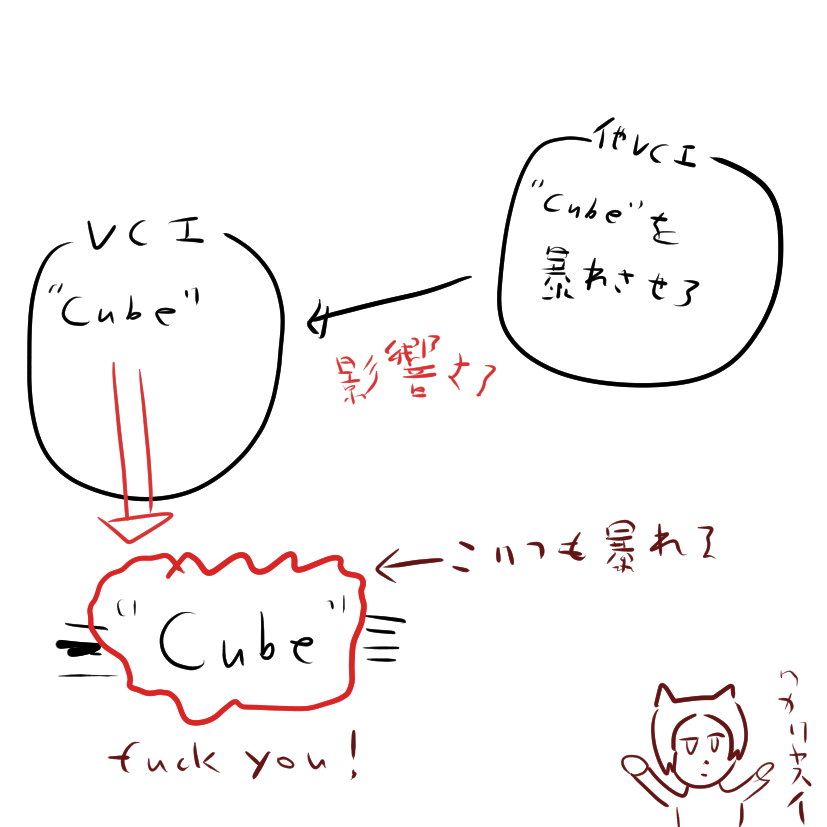 他VCI
"Cube"を
暴れさせる
VCI
"Cube"
影響さる
こいつも暴れる
"Cube"
fuck you!
ワカリヤスイ